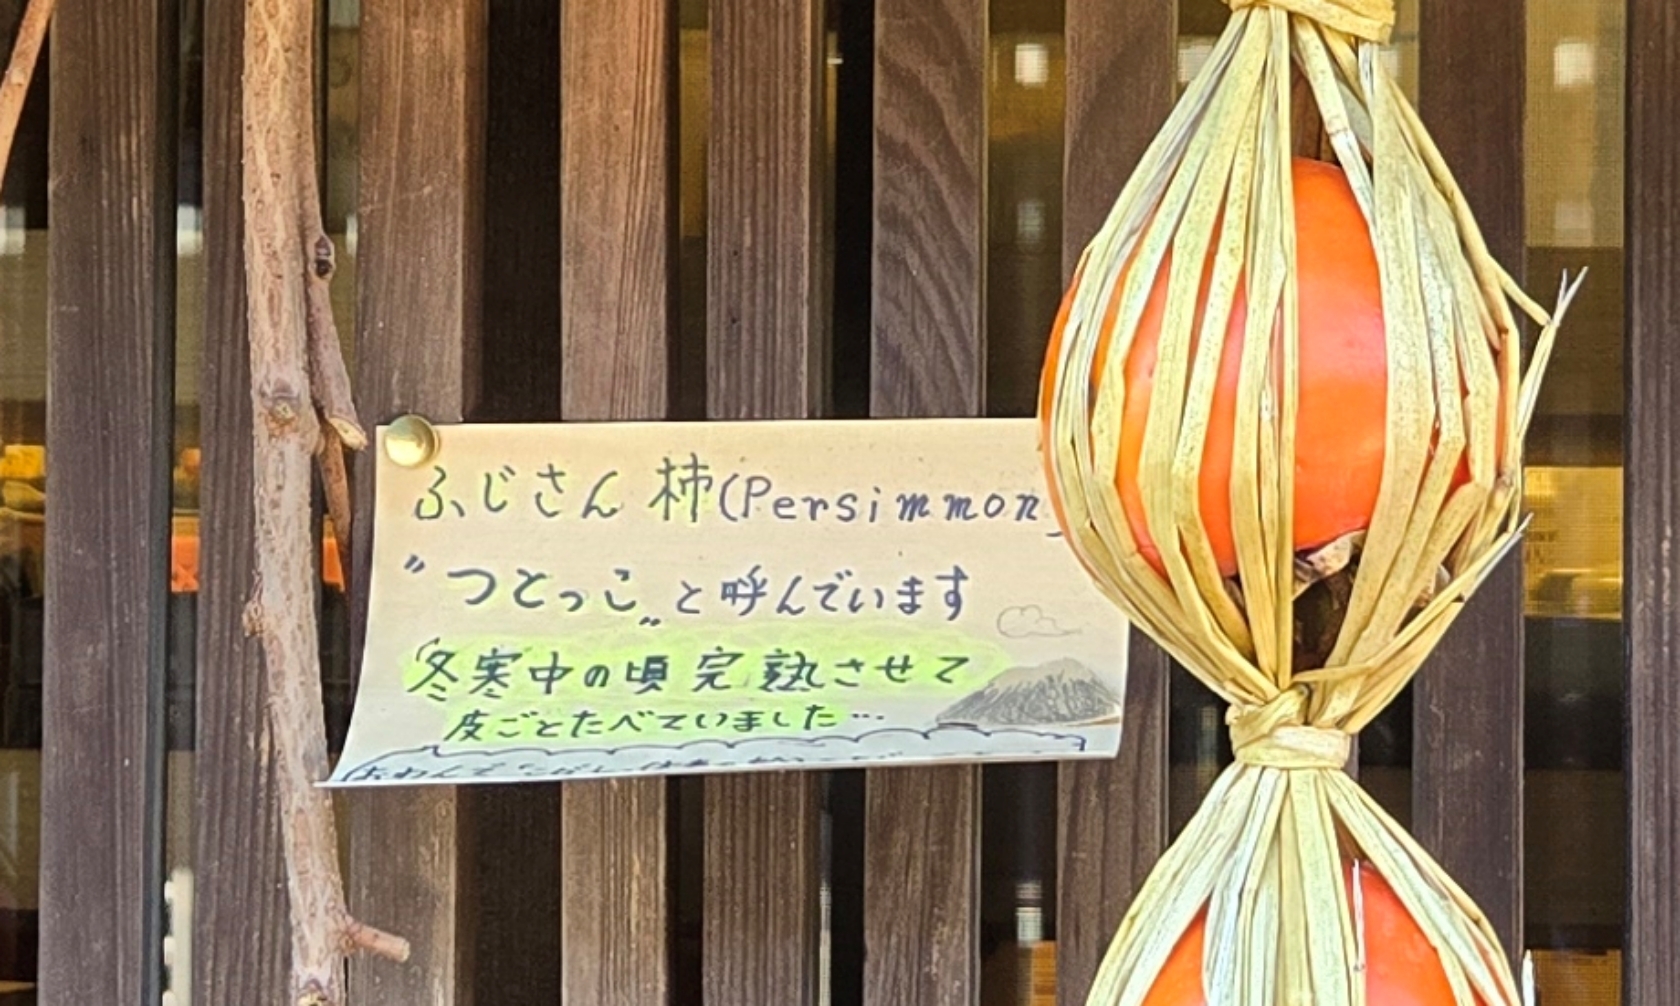 ふじさん 柿(Persimmon)
"つとっこ" と呼んでいます
冬寒中の頃 完熟させて
皮ごとたべていました…